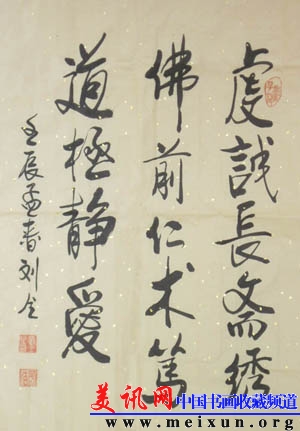 虔誠長斋绣
佛前仁术篤
道極静愛
壬辰孟春刘仝
美讯网 中国书画收藏频道
www.meixun.org